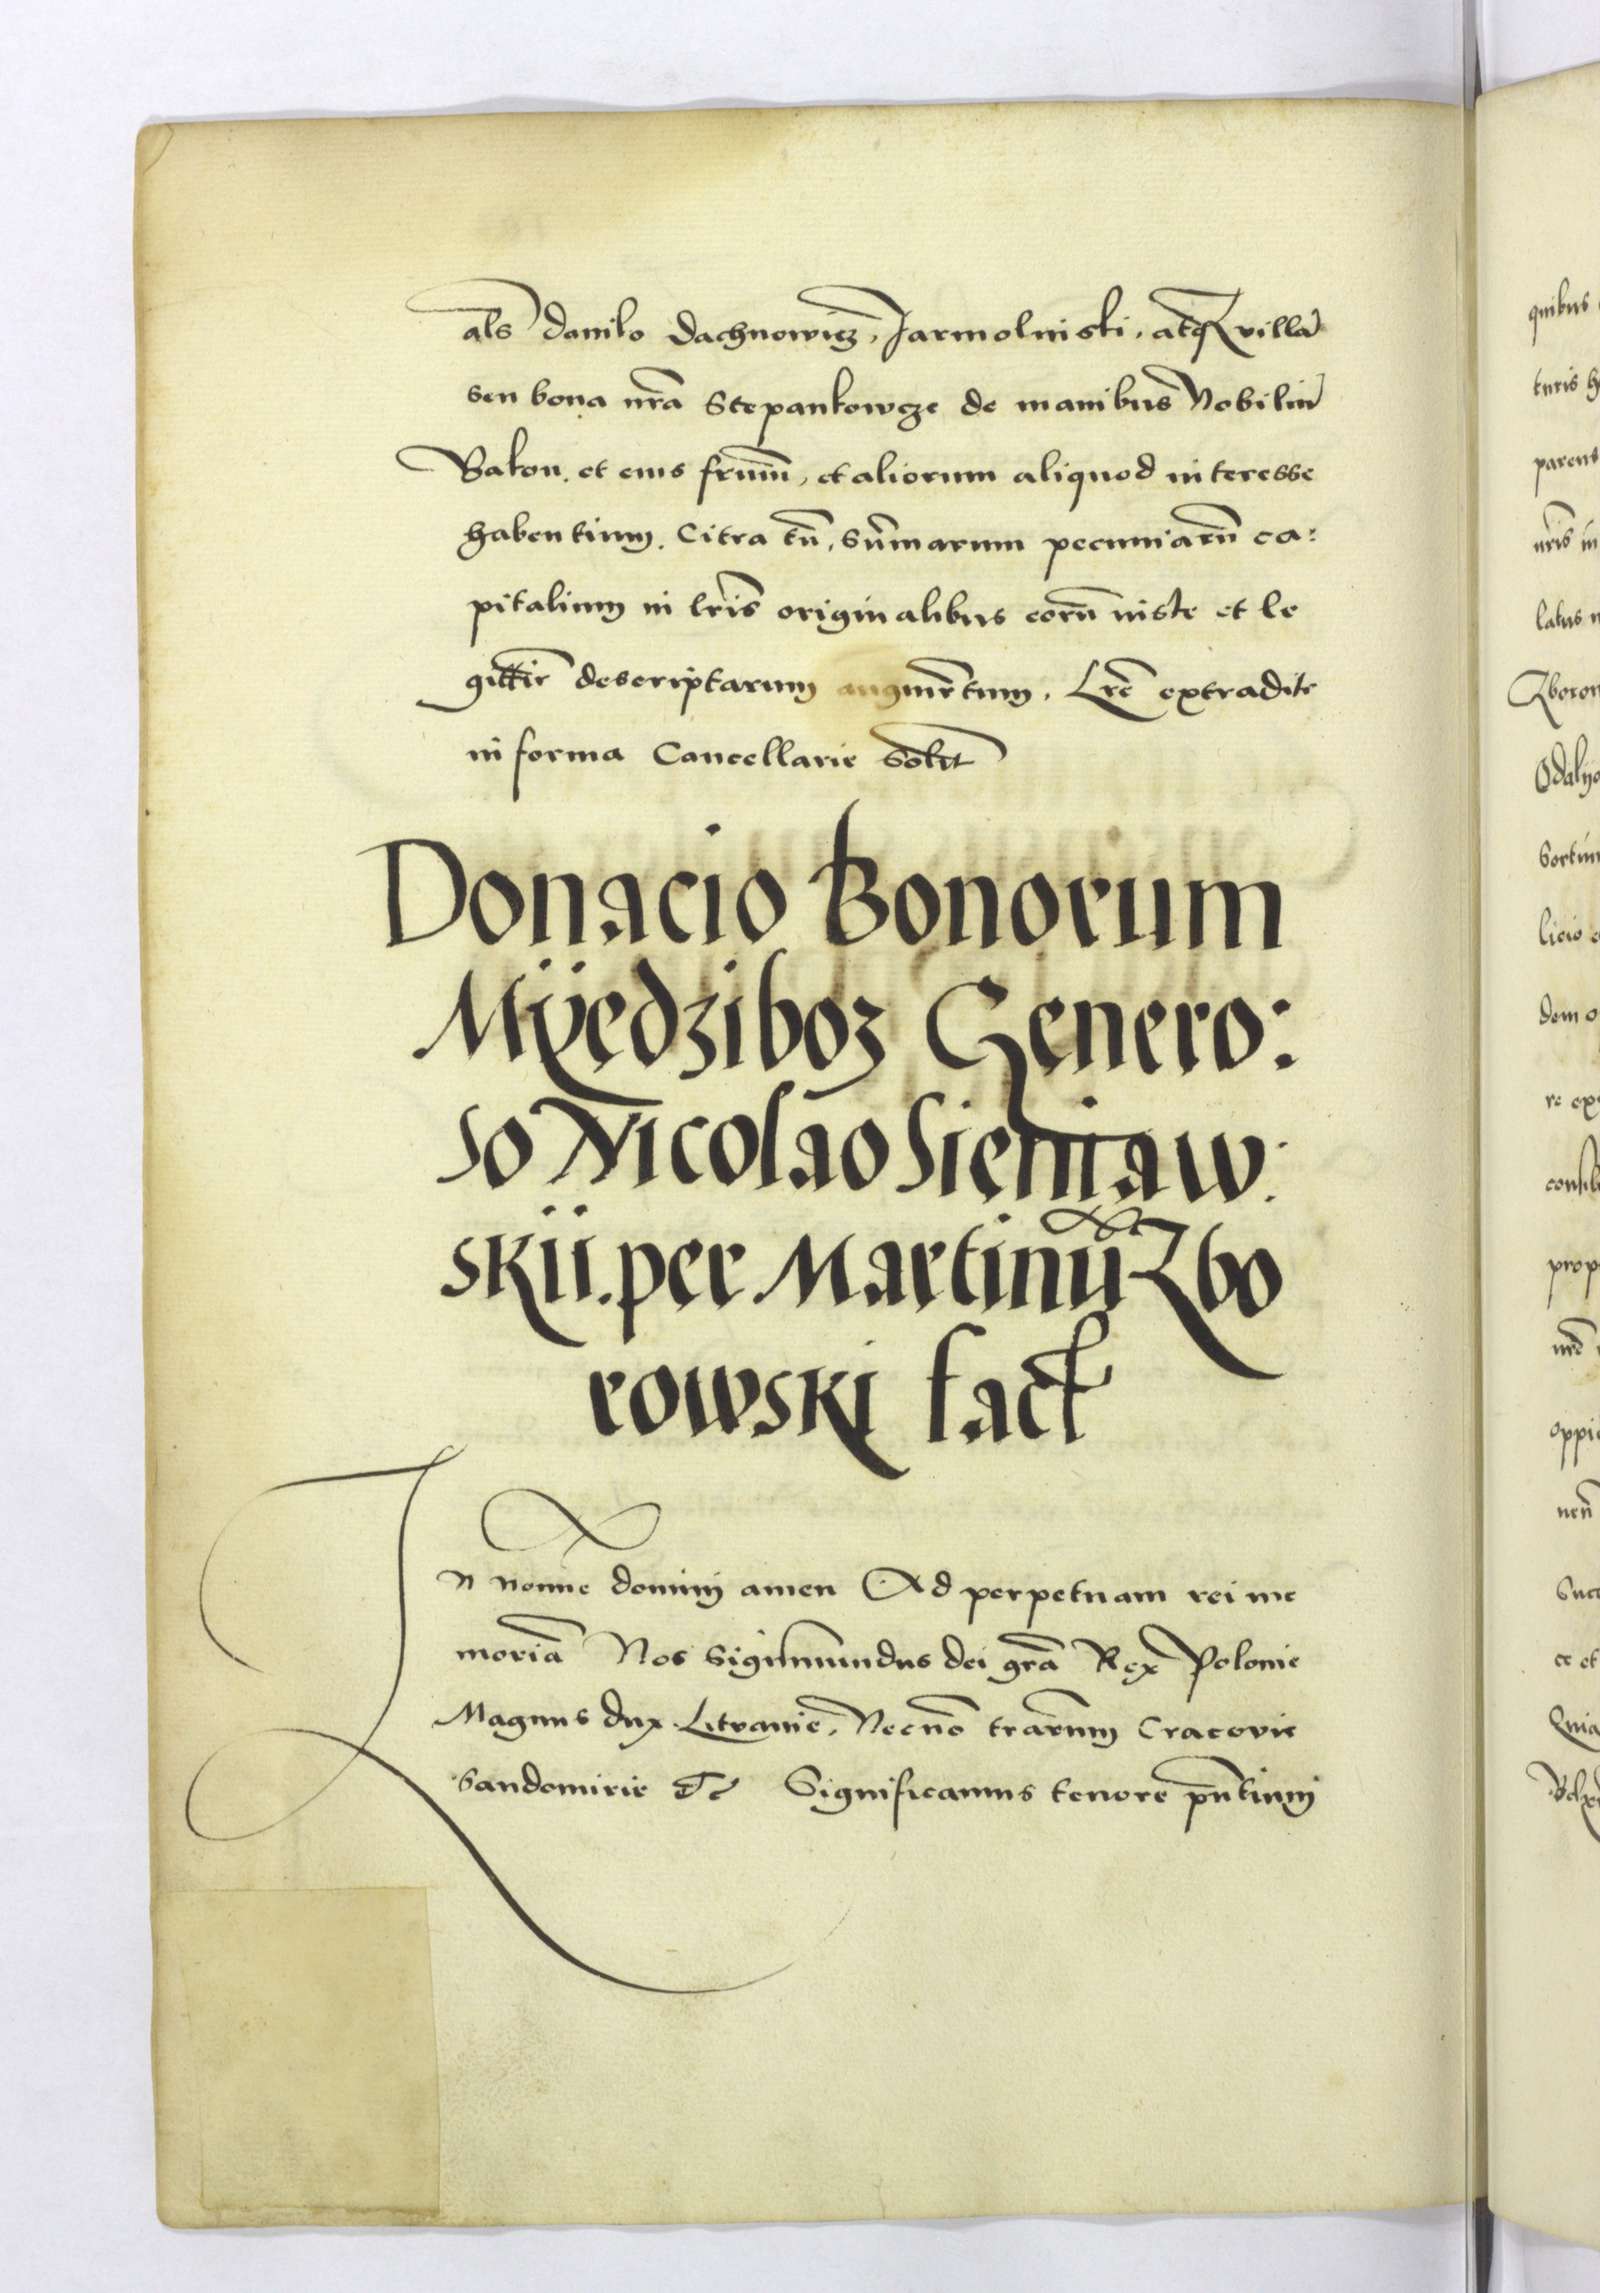 als Danilo Dachnowicz, Jarmolniski, atq villa
seu bona nra Stepankowcze de manibus Nobiliu
Bakou. et eius frum, et aliorum aliquod interesse
habentium. Citra tn, sumarum pecuniaru ca:
pitalium in lris originalibus eoru iuste et le
gittie descriptarum augmentum. Lre extradite
in forma Cancellarie Solit
Donacio Bonorum
Mÿedziboz Genero:
so Nicolao Sieniaw:
skii. per Martinu Zbo
rowski fact
In nomie domini amen Ad perpetuam rei me
moria Nos Sigismundus dei gra Rex Polonie
Magnus dux Litvanie, Necno trarum Cracovie
Sandomirie etc Significamus tenore pntium
quibus
turis
parens
nris in
latus
Zborow
Odalijo
Sortim
licio
dem o
re ex
consili
prop
nre
oppi
nen
Suce
ce et
Quia